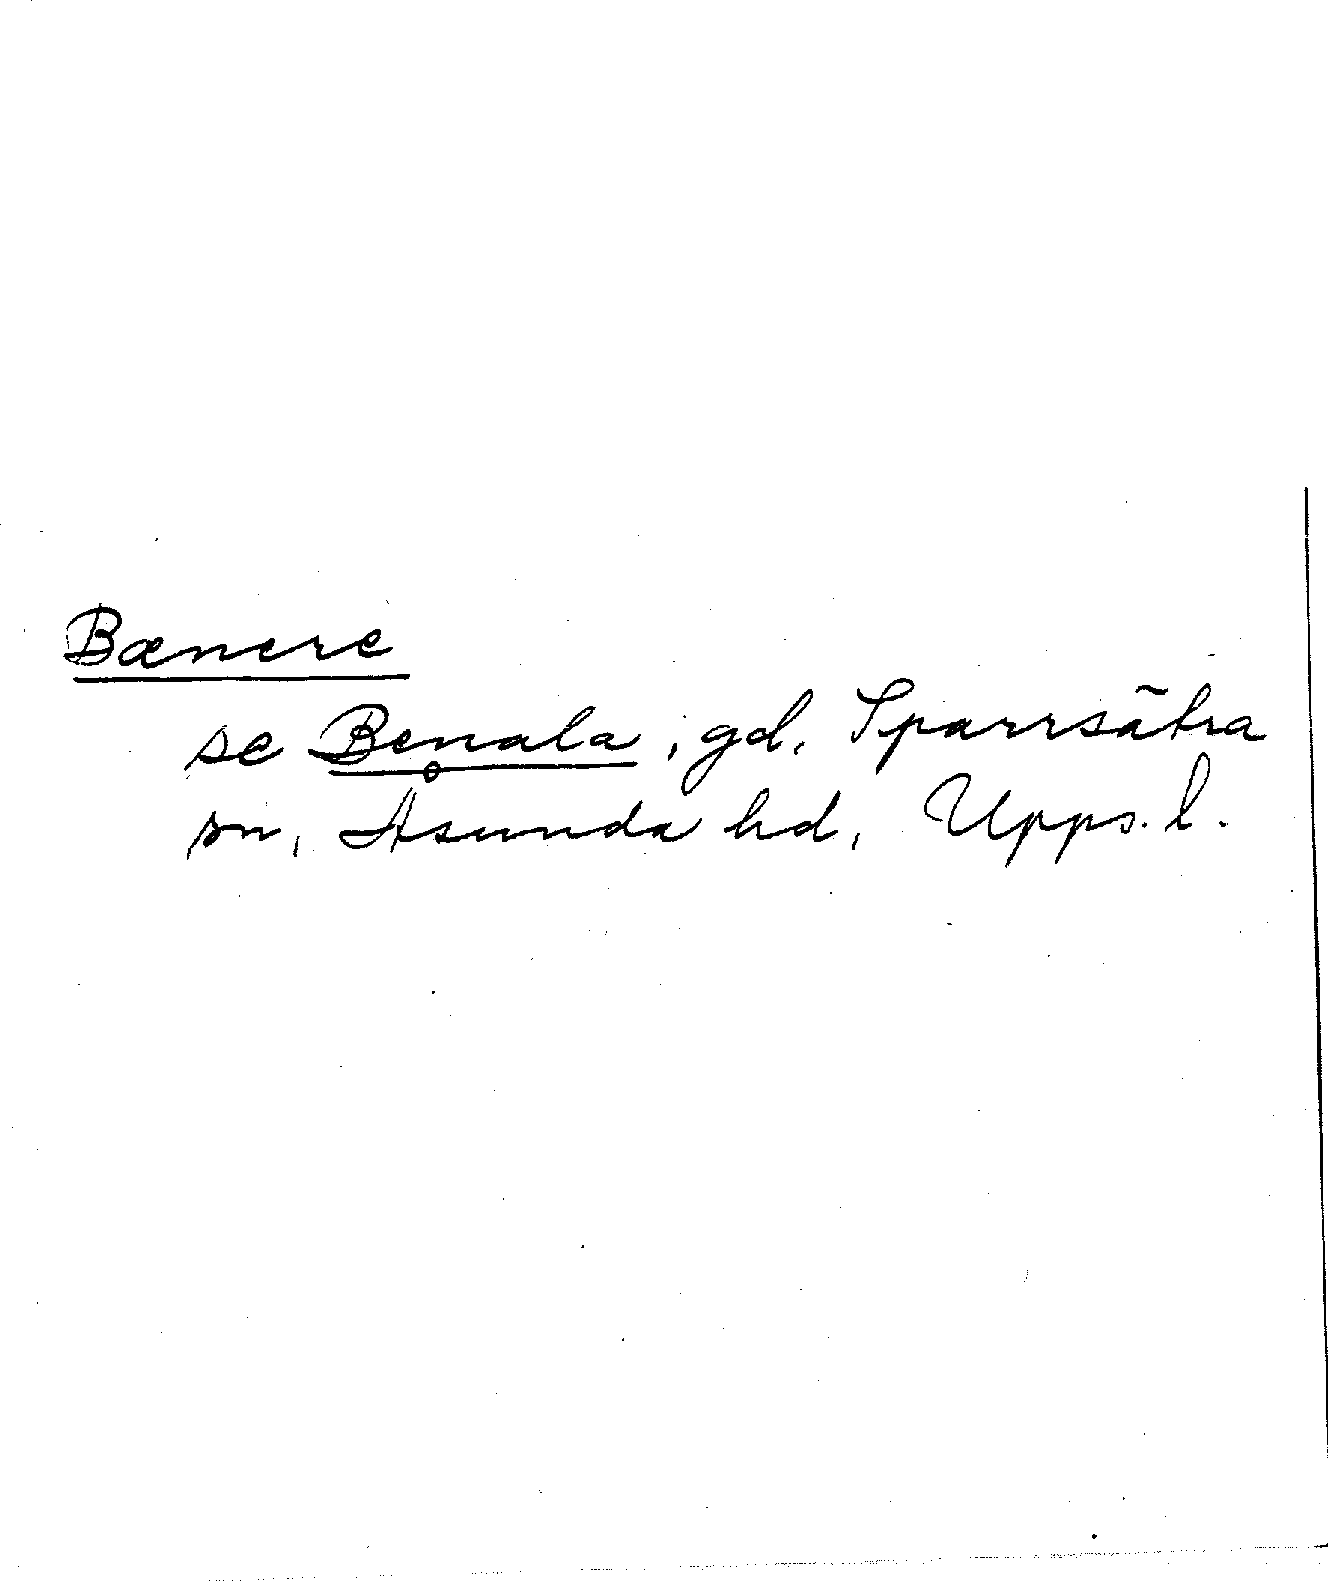 Bænere
se Benala, gd, Sparrsätra
sn, Åsunda hd, Upps. l.